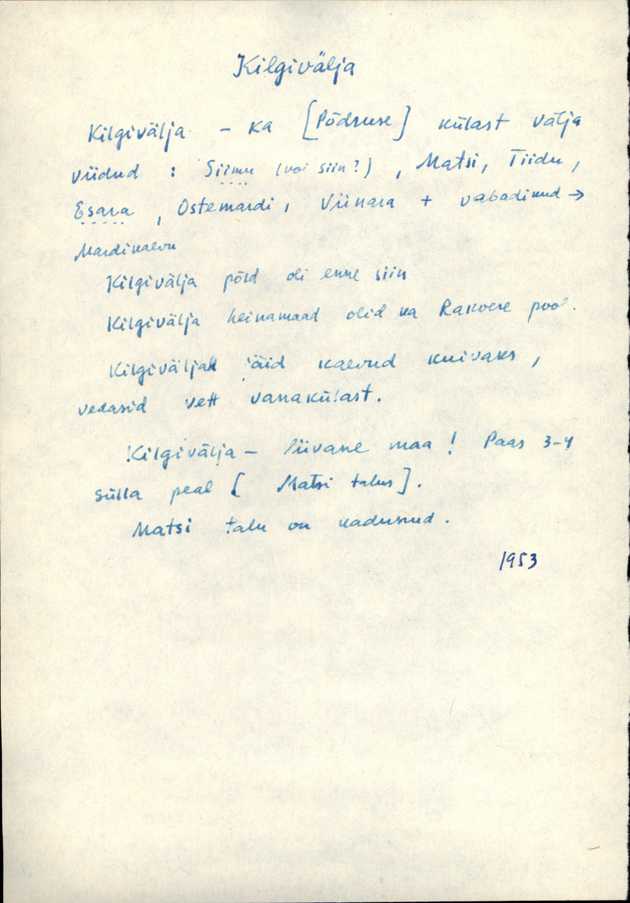 Kilgivälja
Kilgivälja – ka [Põdruse] külast välja
viidud : Siimu (või siin?), Matsi, Tiidu,
Esara, Ostemardi, Viinara + vabadinud →
Mardikaevu
Kilgivälja põld oli enne siin
Kilgivälja heinamaad olid ka Rakvere pool.
Kilgiväljal jäid kaevud kuivaks,
vedasid vett vanakülast.
Kilgivälja – liivane maa! Paas 3-4
sülla peal [Matsi talus].
Matsi talu on kadunud.
1953